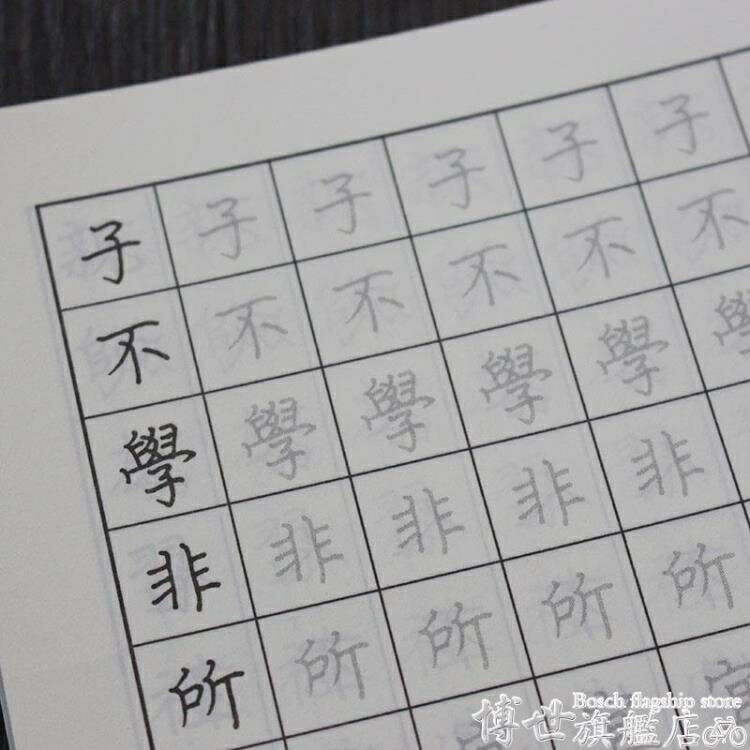 子子子子子子
不不不不不不
學學學學學學
非非非非非
所所所所所
Bosch flagship store
博世旗艦店